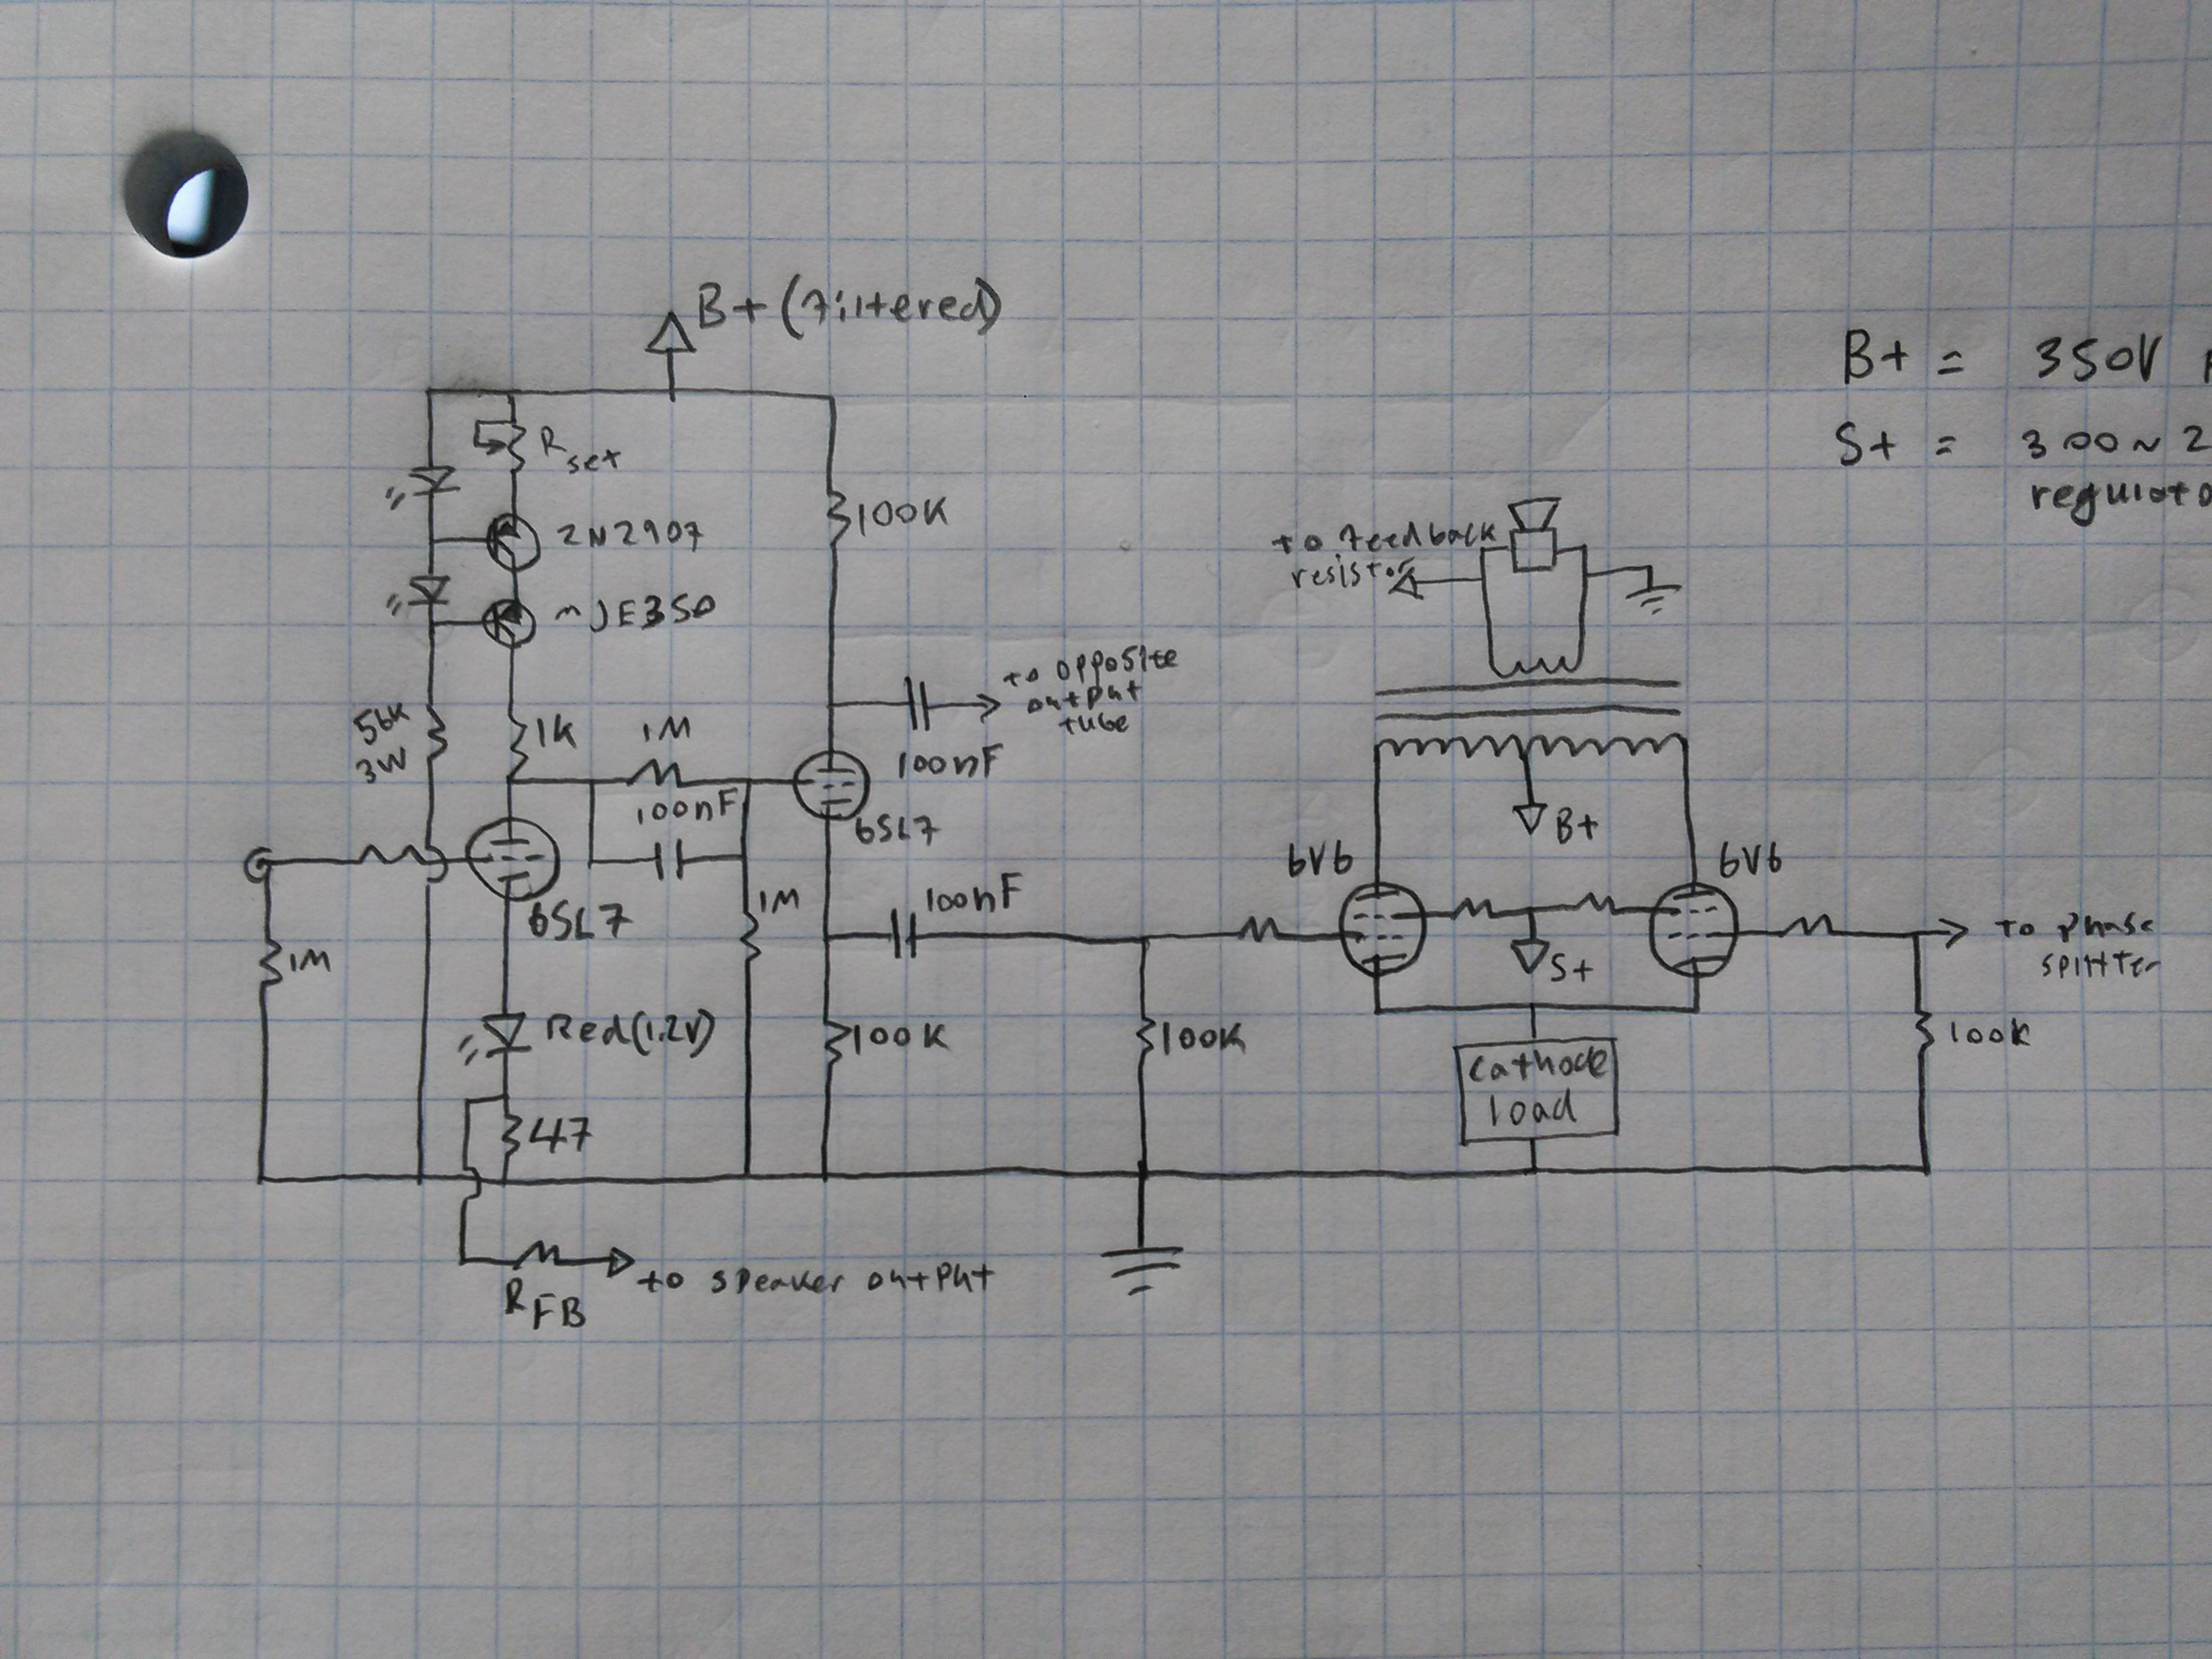 B+ (filtered)
B+ = 350V
S+ = 300~2
regulato
Rset
100K
2N2907
to feedback
resistor
MJE350
to opposite
output
tube
56K
3W
1K
1M
100nF
100nF
6SL7
B+
6V6
6V6
6SL7
1M
100nF
1M
S+
to phase
splitter
Red(1.2V)
100K
100K
100K
cathode
load
47
RFB
to speaker output